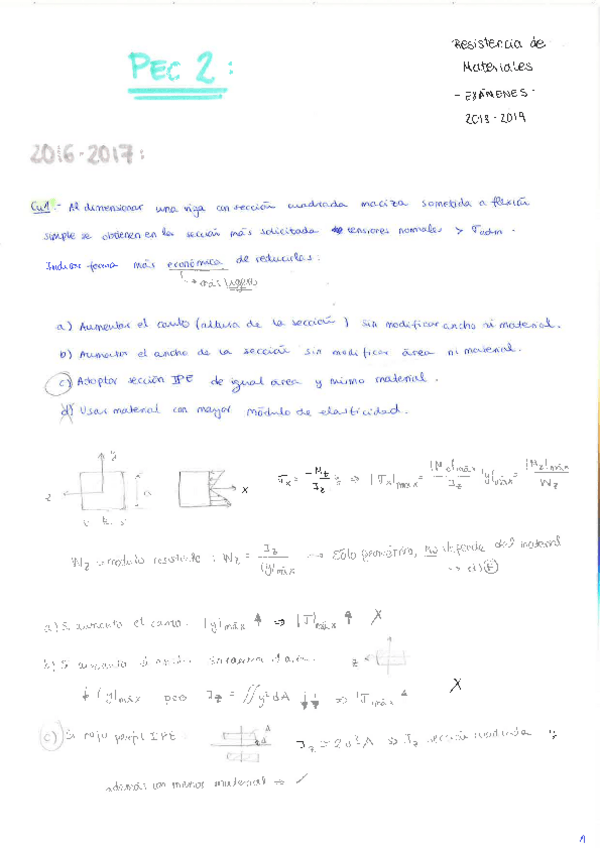 PEC 2:
Resistencia de
Materiales
- EXÁMENES -
2018 - 2019
2016-2017:
Cu1.- Al dimensionar una viga con sección cuadrada maciza sometida a flexión
simple se obtienen en la sección más solicitada tensiones normales > σadm.
Indicar forma más económica de reducirlas:
→ más ligera
a) Aumentar el canto (altura de la sección) sin modificar ancho ni material.
b) Aumentar el ancho de la sección sin modificar área ni material.
c) Adoptar sección IPE de igual área y mismo material.
d) Usar material con mayor módulo de elasticidad.
y
z
a
x
σx = -Mz/Iz y ⇒ |σx|máx = |Mz|máx/Iz |y|máx = |Mz|máx/Wz
Wz = módulo resistente: Wz = Iz/|y|máx → Sólo geométrico, no depende del material
→ d) F
a) Si aumento el canto: |y|máx ↑ ⇒ |σ|máx ↑ X
b) Si aumento el ancho sin
z
↓ |y|máx pero Iz = ∬y²dA ↓↓ ⇒ |σ|máx ↑ X
c) Si cojo perfil IPE: Iz = 2d²A ⇒ Iz sección cuadrada
además con menos material ⇒ ✓
1